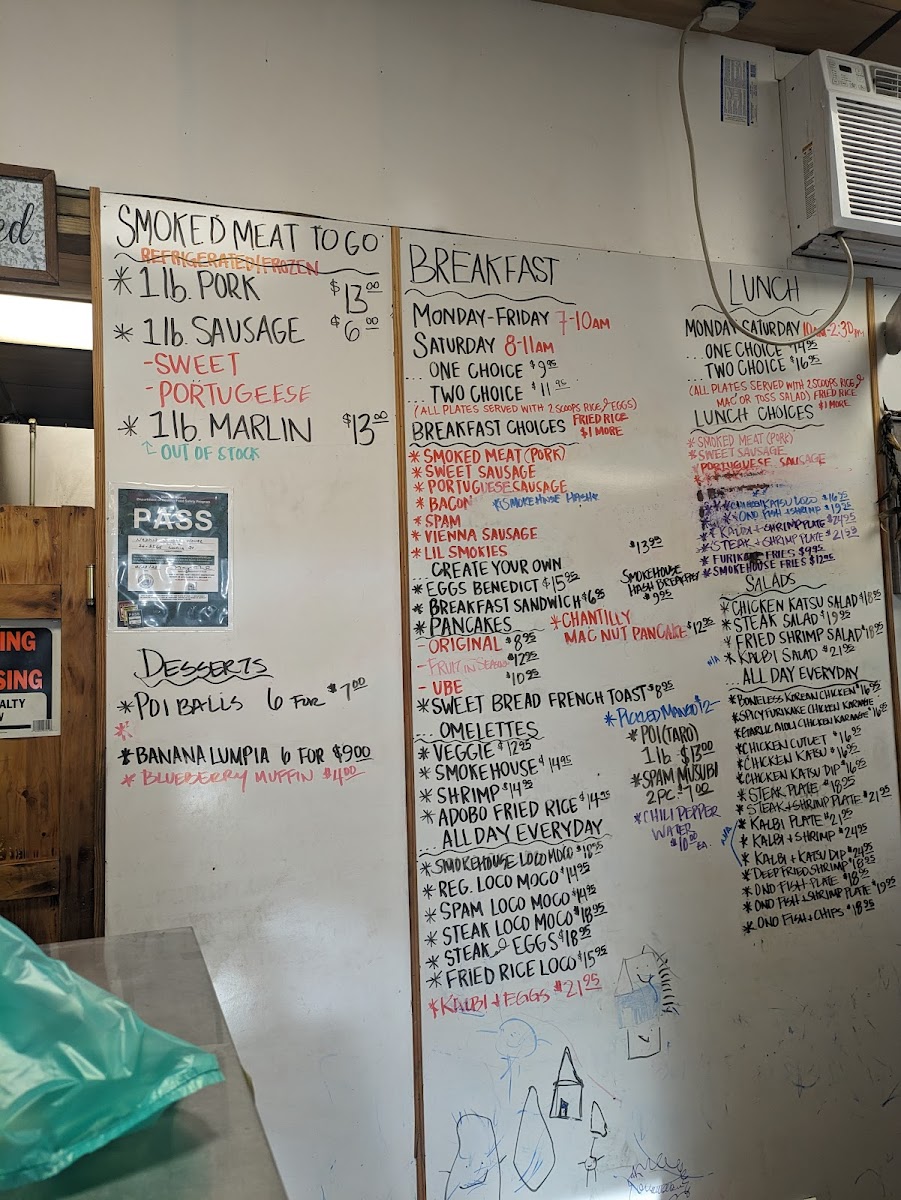 ed
SMOKED MEAT TO GO
REFRIGERATED/FROZEN
* 1 lb. PORK $13.00
* 1 lb. SAUSAGE $6.00
- SWEET
- PORTUGEESE
* 1 lb. MARLIN $13.00
OUT OF STOCK
PASS
DESSERTS
* POI BALLS 6 FOR $7.00
*
* BANANA LUMPIA 6 FOR $9.00
* BLUEBERRY MUFFIN $4.00
NG
SING
ALTY
W
BREAKFAST
MONDAY-FRIDAY 7-10AM
SATURDAY 8-11AM
... ONE CHOICE $9.95
... TWO CHOICE $11.95
(ALL PLATES SERVED WITH 2 SCOOPS RICE & EGGS)
BREAKFAST CHOICES FRIED RICE $1 MORE
* SMOKED MEAT (PORK)
* SWEET SAUSAGE
* PORTUGUESE SAUSAGE
* BACON * SMOKEHOUSE HASH
* SPAM
* VIENNA SAUSAGE
* LIL SMOKIES
$13.95
... CREATE YOUR OWN
* EGGS BENEDICT $15.95
SMOKEHOUSE
HASH BREAKFAST
$9.95
* BREAKFAST SANDWICH $6.95
* PANCAKES
* CHANTILLY
MAC NUT PANCAKE $12.95
- ORIGINAL $8.95
- FRUIT IN SEASON $12.95
- UBE $10.95
* SWEET BREAD FRENCH TOAST $8.95
... OMELETTES
* VEGGIE $12.95
* SMOKEHOUSE $14.95
* SHRIMP $14.95
* ADOBO FRIED RICE $14.95
... ALL DAY EVERYDAY
* SMOKEHOUSE LOCO MOCO $16.95
* REG. LOCO MOCO $14.95
* SPAM LOCO MOCO $14.95
* STEAK LOCO MOCO $18.95
* STEAK & EGGS $18.95
* FRIED RICE LOCO $15.95
* KALBI + EGGS $21.95
* PICKLED MANGO $12
* POI (TARO)
1 lb. $13.00
* SPAM MUSUBI
2 PC. $7.00
* CHILI PEPPER
WATER
$10.00 EA.
LUNCH
MONDAY-SATURDAY 10AM-2:30PM
... ONE CHOICE $14.95
TWO CHOICE $16.95
(ALL PLATES SERVED WITH 2 SCOOPS RICE &
MAC OR TOSS SALAD) FRIED RICE
$1 MORE
LUNCH CHOICES
* SMOKED MEAT (PORK)
* SWEET SAUSAGE
* PORTUGUESE SAUSAGE
KATSU LOCO $16.95
* ONO FISH + SHRIMP $19.95
* KALBI + SHRIMP PLATE $24.95
* STEAK + SHRIMP PLATE $21.95
* FURIKAKE FRIES $9.95
* SMOKEHOUSE FRIES $12.95
SALADS
* CHICKEN KATSU SALAD $18.95
* STEAK SALAD $19.95
* FRIED SHRIMP SALAD $18.95
N/A * KALBI SALAD $21.95
... ALL DAY EVERYDAY
* BONELESS KOREAN CHICKEN $16.95
* SPICY FURIKAKE CHICKEN KARAAGE
* GARLIC AIOLI CHICKEN KARAAGE $16.95
* CHICKEN CUTLET $16.95
* CHICKEN KATSU $16.95
* CHICKEN KATSU DIP $16.95
* STEAK PLATE $18.95
* STEAK + SHRIMP PLATE $21.95
N/A * KALBI PLATE $21.95
* KALBI + SHRIMP $24.95
* KALBI + KATSU DIP $24.95
* DEEP FRIED SHRIMP $18.95
* ONO FISH PLATE $18.95
* ONO FISH + SHRIMP PLATE $19.95
* ONO FISH + CHIPS $18.95